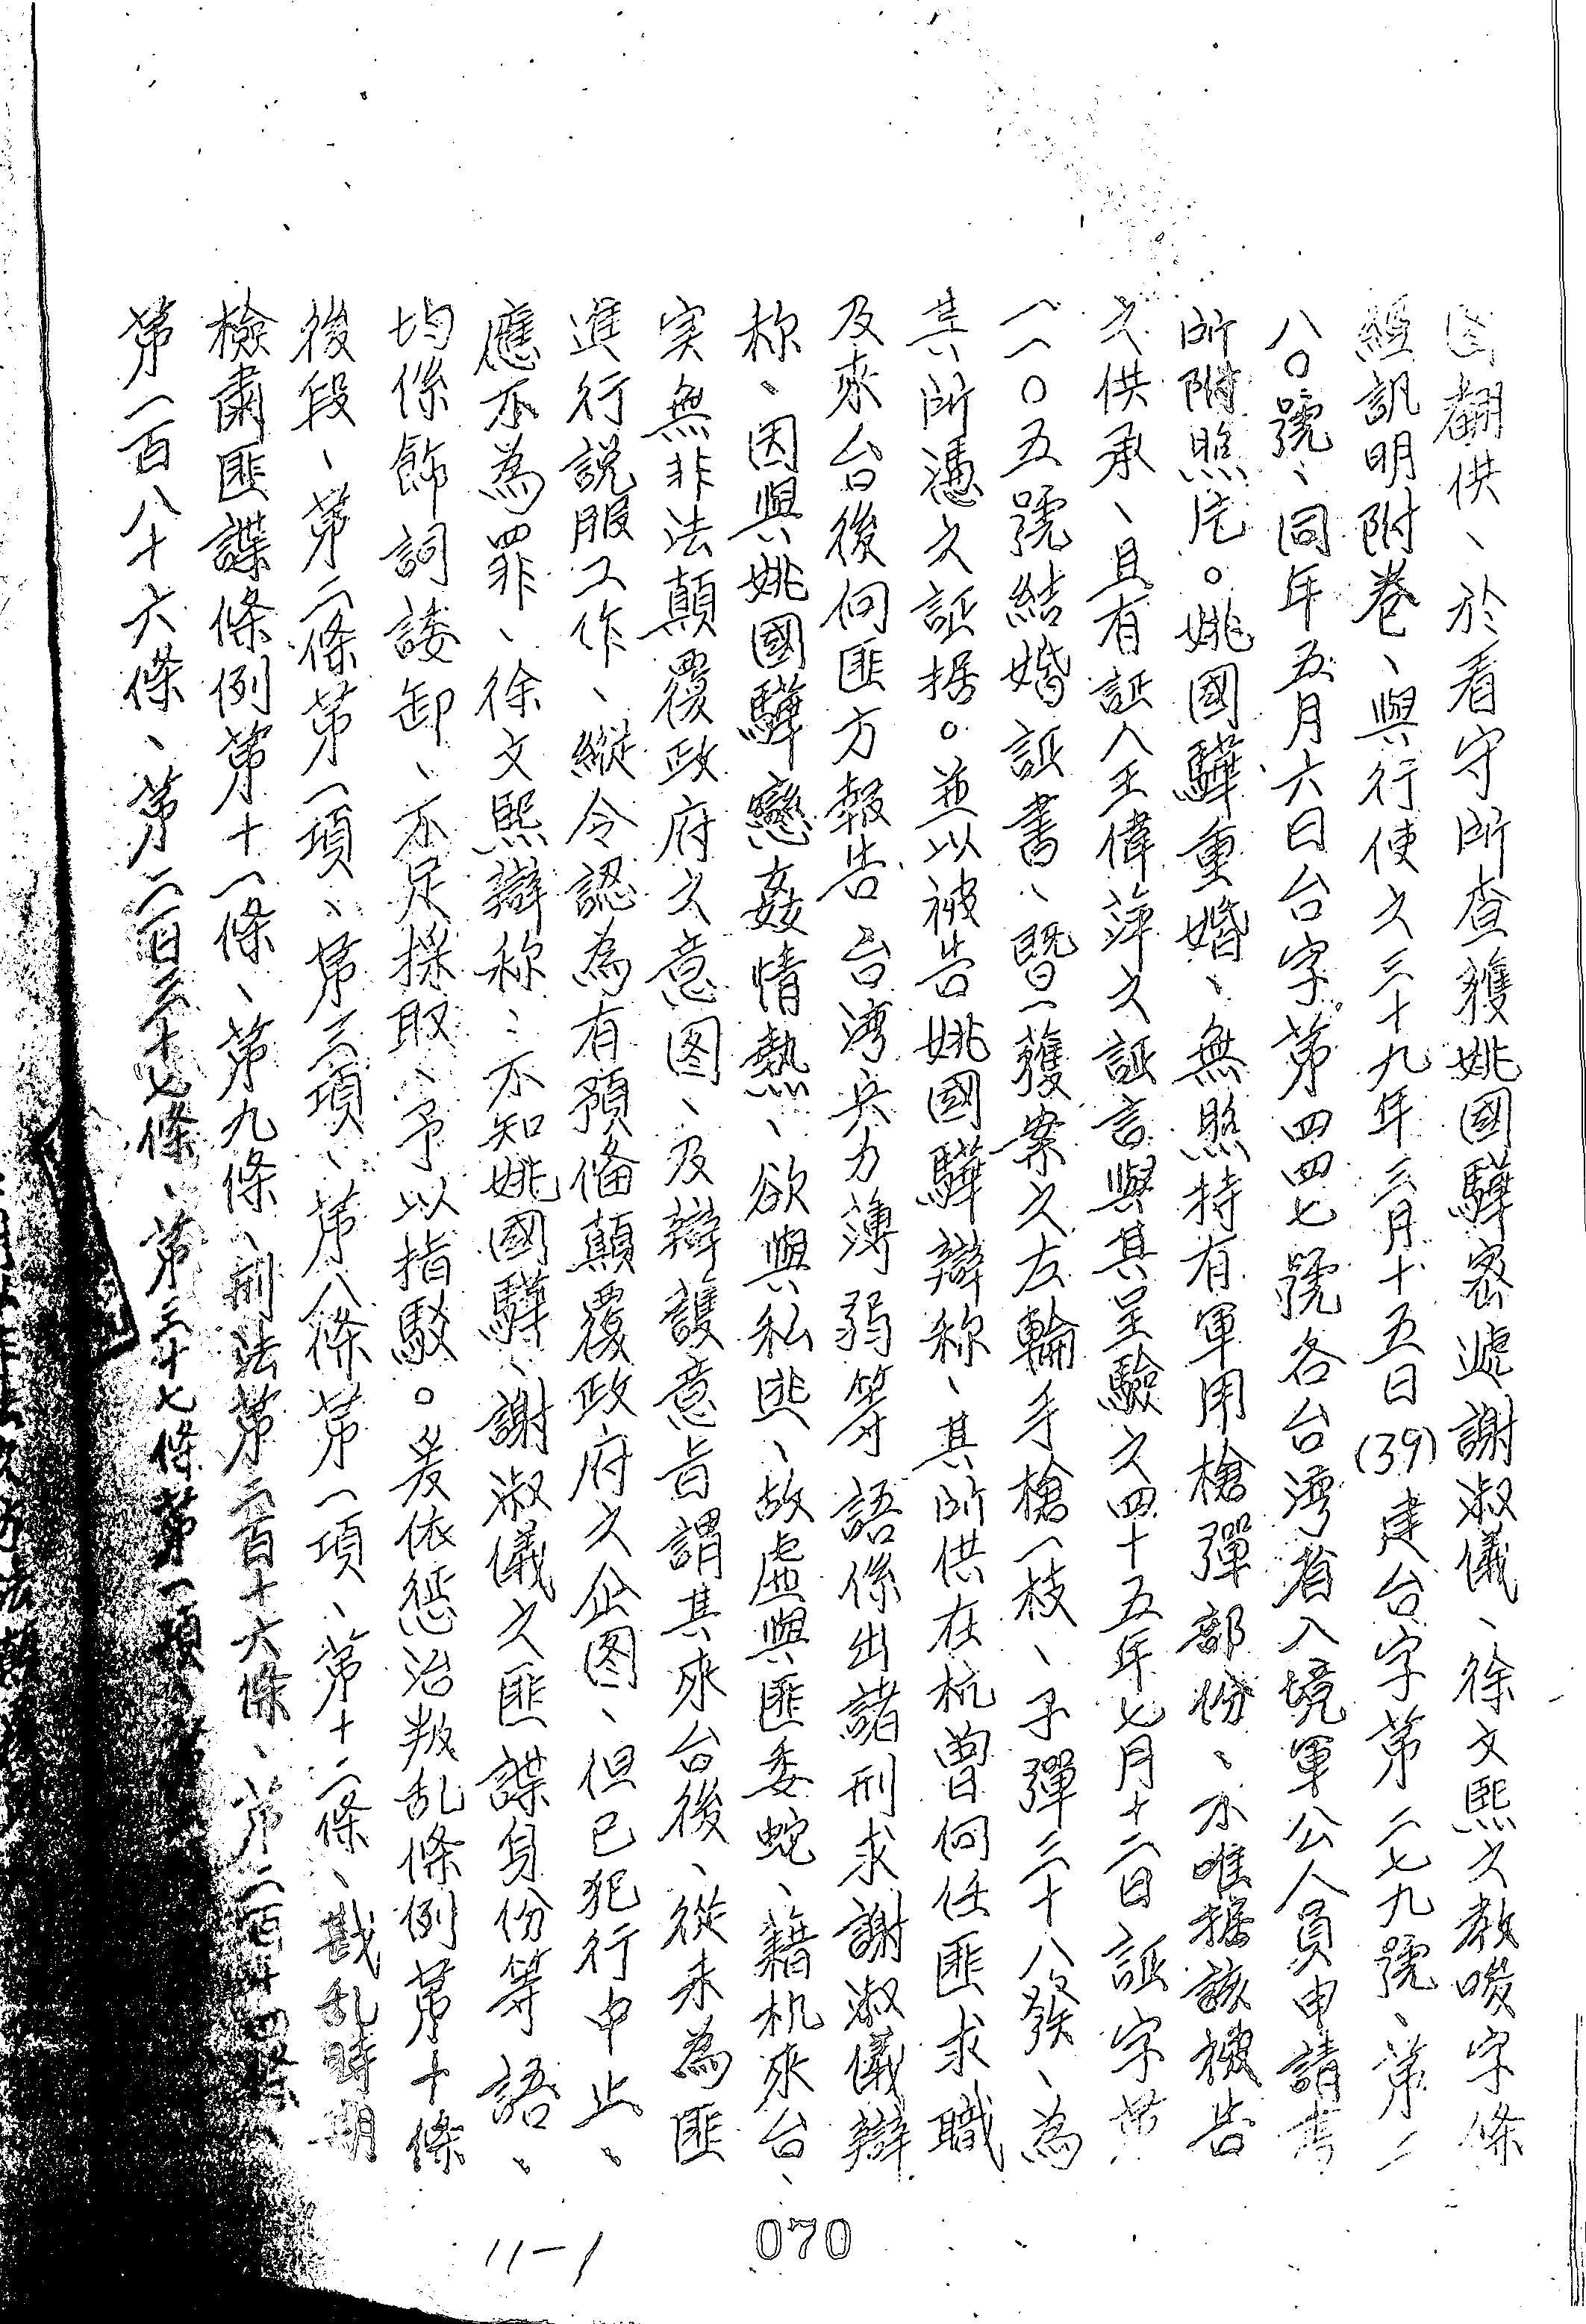 图翻供、於看守所查獲姚國驊密遞謝淑儀、徐文熙之教唆字條
經訊明附卷、與行使之三十九年三月十五日(39)建台字第二七九號、第二
八〇號、同年五月六日台字第四四七號各台灣省入境軍公人員申請書
所附照片。姚國驊重婚、無照持有軍用槍彈部份、不唯據該被告
之供承、且有証人王偉萍之証言與其呈驗之四十五年七月十二日証字第
一一〇五號結婚証書、暨一獲案之左輪手槍一枝、子彈三十八發、為
其所憑之証据。並以被告姚國驊辯称、其所供在杭曾向任匪求職
及來台後向匪方報告台湾兵力薄弱等語係出諸刑求謝淑儀辯
称、因與姚國驊戀姦情熱、欲與私逃、故虛與匪委蛇、藉机來台、
実無非法顛覆政府之意图、及辯護意旨謂其來台後、從未為匪
進行説服工作、縱令認為有預備顛覆政府之企图、但已犯行中止、
應不為罪、徐文熙辯称：不知姚國驊、謝淑儀之匪諜身份等語、
均係飾詞諉卸、不足採取、予以指駁。爰依惩治叛乱條例第十條
後段、第二條第一項、第三項、第八條第一項、第十二條、戡乱時期
檢肅匪諜條例第十一條、第九條、刑法第二百十六條、第二百十四條、
第一百八十六條、第二百三十七條、第三十七條第一項